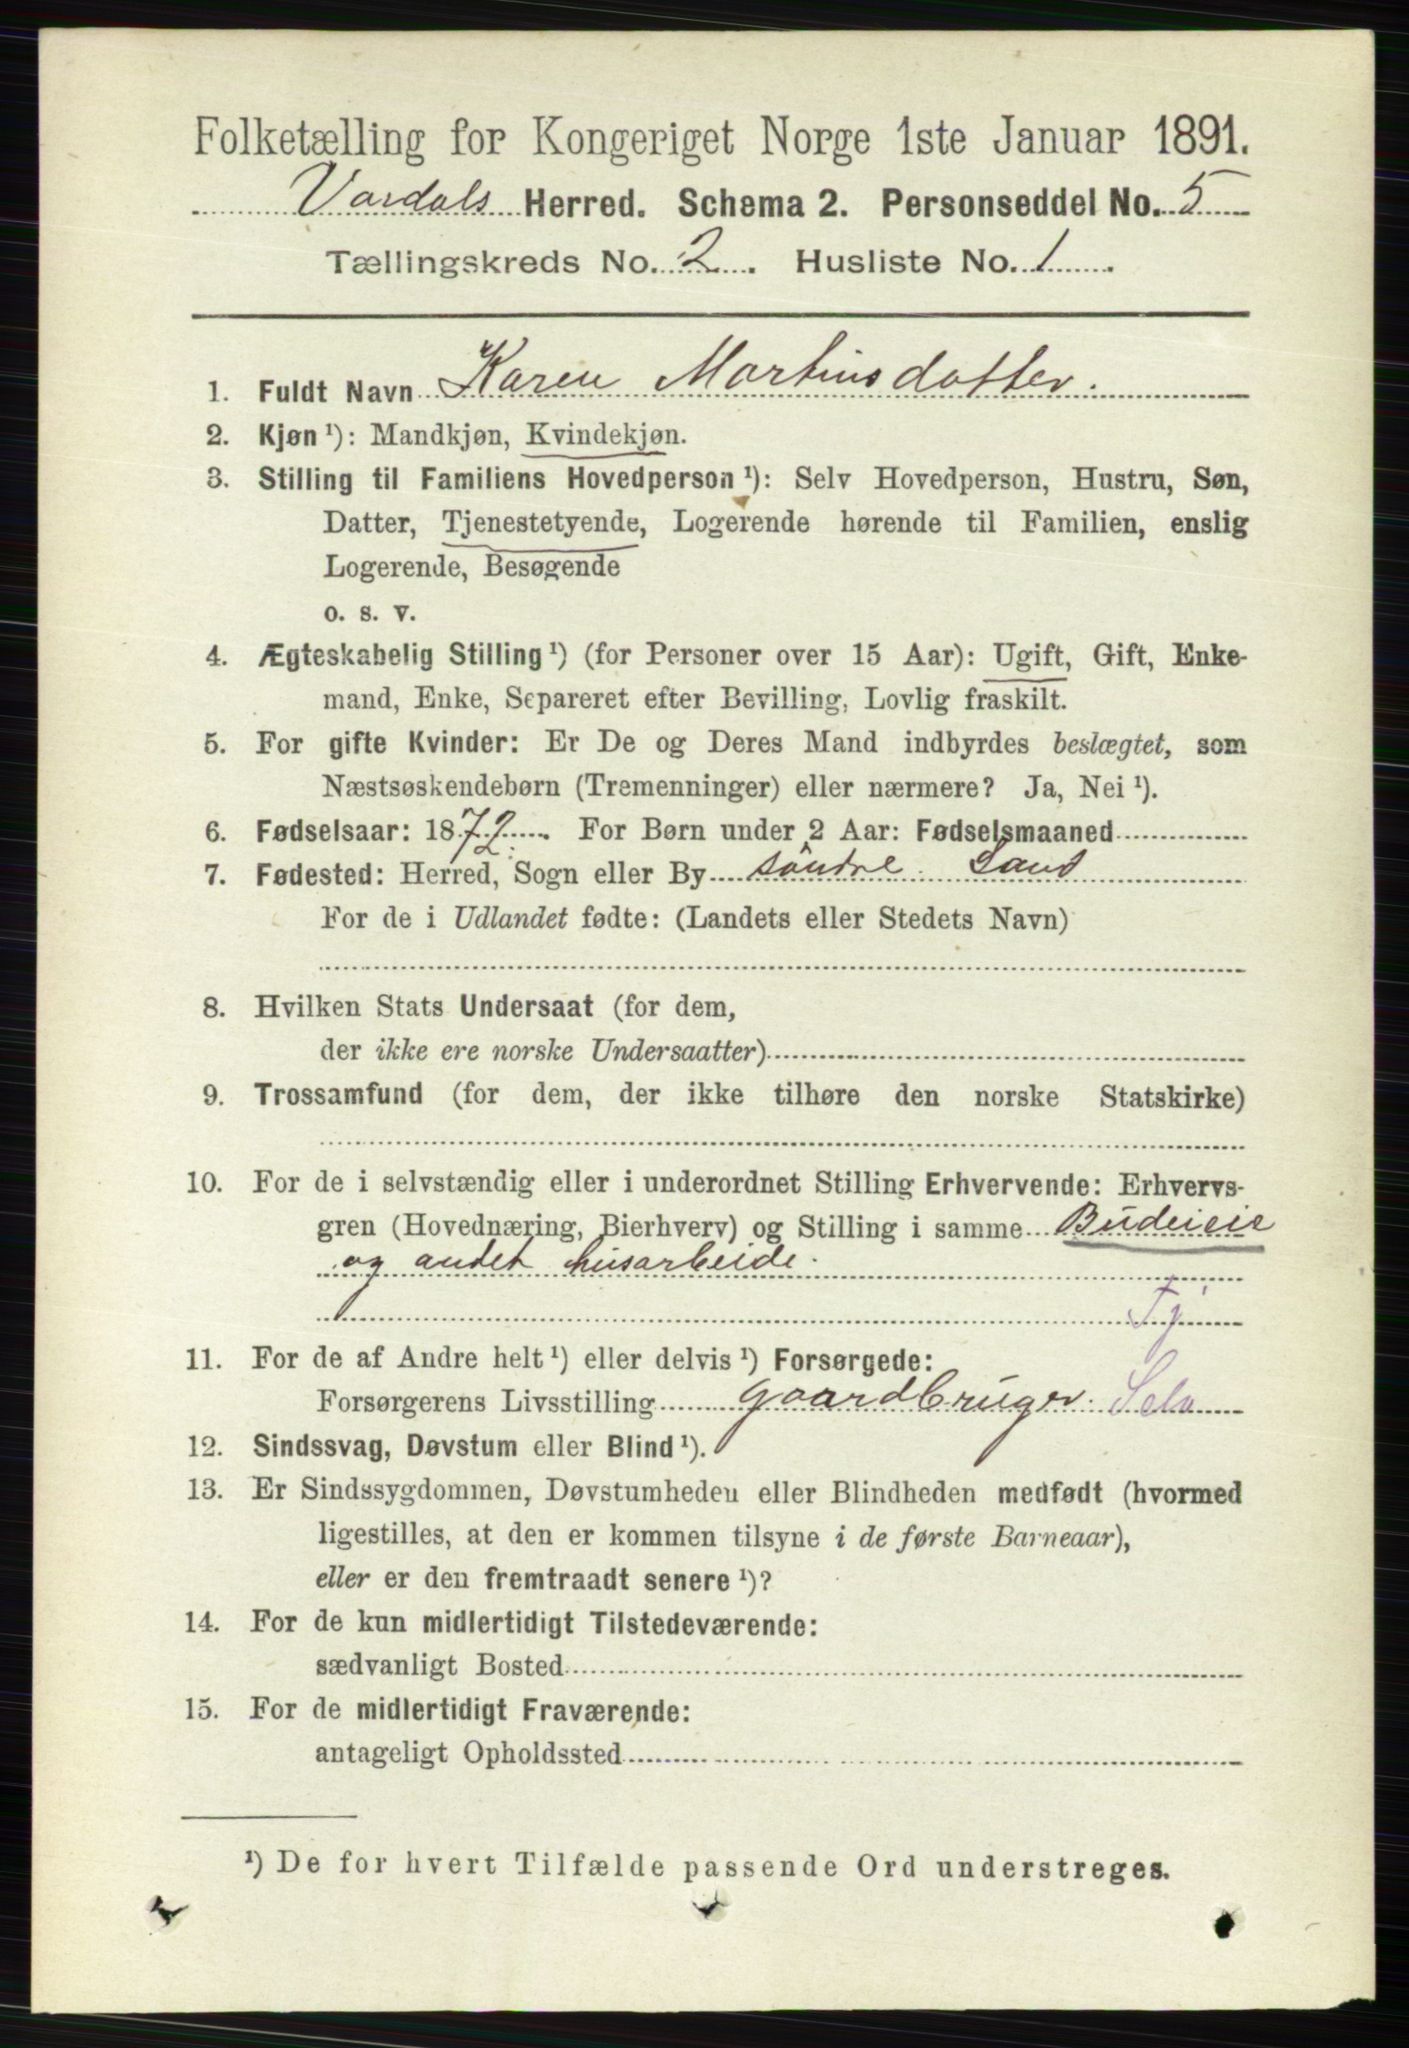 Folketælling for Kongeriget Norge 1ste Januar 1891.
Vardals Herred. Schema 2. Personseddel No. 5
Tællingskreds No. 2. Husliste No. 1.
1. Fuldt Navn Karen Martinsdatter.
2. Kjøn ¹): Mandkjøn, Kvindekjøn.
3. Stilling til Familiens Hovedperson ¹): Selv Hovedperson, Hustru, Søn,
Datter, Tjenestetyende, Logerende hørende til Familien, enslig
Logerende, Besøgende
o. s. v.
4. Ægteskabelig Stilling ¹) (for Personer over 15 Aar): Ugift, Gift, Enke-
mand, Enke, Separeret efter Bevilling, Lovlig fraskilt.
5. For gifte Kvinder: Er De og Deres Mand indbyrdes beslægtet, som
Næstsøskendebørn (Tremenninger) eller nærmere? Ja, Nei ¹).
6. Fødselsaar: 1872. For Børn under 2 Aar: Fødselsmaaned
7. Fødested: Herred, Sogn eller By söndre Land
For de i Udlandet fødte: (Landets eller Stedets Navn)
8. Hvilken Stats Undersaat (for dem,
der ikke ere norske Undersaatter)
9. Trossamfund (for dem, der ikke tilhøre den norske Statskirke)
10. For de i selvstændig eller i underordnet Stilling Erhvervende: Erhvervs-
gren (Hovednæring, Bierhverv) og Stilling i samme Budeieie
og andet husarbeide.
Tj
11. For de af Andre helt ¹) eller delvis ¹) Forsørgede:
Forsørgerens Livsstilling gaardbruger. Selv
12. Sindssvag, Døvstum eller Blind ¹).
13. Er Sindssygdommen, Døvstumheden eller Blindheden medfødt (hvormed
ligestilles, at den er kommen tilsyne i de første Barneaar),
eller er den fremtraadt senere ¹)?
14. For de kun midlertidigt Tilstedeværende:
sædvanligt Bosted
15. For de midlertidigt Fraværende:
antageligt Opholdssted
¹) De for hvert Tilfælde passende Ord understreges.